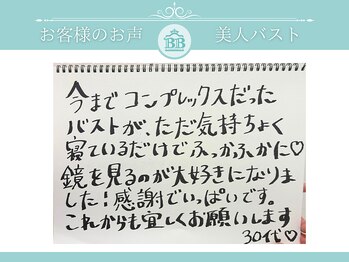 お客様のお声
BB
美人バスト
今までコンプレックスだった
バストが、ただ気持ちよく
寝ているだけでふっかふかに♡
鏡を見るのが大好きになりま
した！感謝でいっぱいです。
これからも宜しくお願いします
30代♡